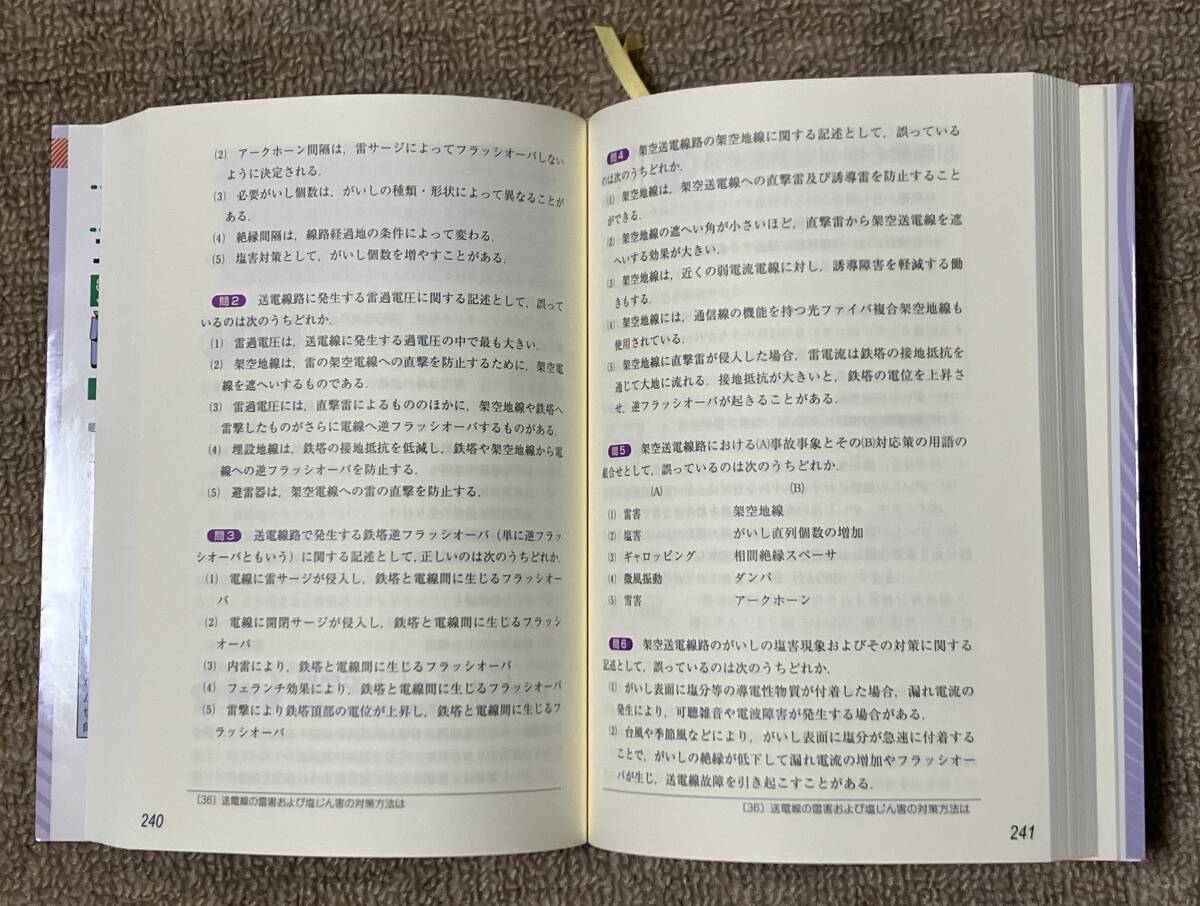 (2) アークホーン間隔は，雷サージによってフラッシオーバしない
ように決定される．
(3) 必要がいし個数は，がいしの種類・形状によって異なることが
ある．
(4) 絶縁間隔は，線路経過地の条件によって変わる．
(5) 塩害対策として，がいし個数を増やすことがある．
問2 送電線路に発生する雷過電圧に関する記述として，誤って
いるのは次のうちどれか．
(1) 雷過電圧は，送電線に発生する過電圧の中で最も大きい．
(2) 架空地線は，雷の架空電線への直撃を防止するために，架空電
線を遮へいするものである．
(3) 雷過電圧には，直撃雷によるもののほかに，架空地線や鉄塔へ
雷撃したものがさらに電線へ逆フラッシオーバするものがある．
(4) 埋設地線は，鉄塔の接地抵抗を低減し，鉄塔や架空地線から電
線への逆フラッシオーバを防止する．
(5) 避雷器は，架空電線への雷の直撃を防止する．
問3 送電線路で発生する鉄塔逆フラッシオーバ（単に逆フラッ
シオーバともいう）に関する記述として，正しいのは次のうちどれか．
(1) 電線に雷サージが侵入し，鉄塔と電線間に生じるフラッシオー
バ
(2) 電線に開閉サージが侵入し，鉄塔と電線間に生じるフラッシ
オーバ
(3) 内雷により，鉄塔と電線間に生じるフラッシオーバ
(4) フェランチ効果により，鉄塔と電線間に生じるフラッシオーバ
(5) 雷撃により鉄塔頂部の電位が上昇し，鉄塔と電線間に生じるフ
ラッシオーバ
〔36〕送電線の雷害および塩じん害の対策方法は
240
問4 架空送電線路の架空地線に関する記述として，誤っている
のは次のうちどれか．
(1) 架空地線は，架空送電線への直撃雷及び誘導雷を防止すること
ができる．
(2) 架空地線の遮へい角が小さいほど，直撃雷から架空送電線を遮
へいする効果が大きい．
(3) 架空地線は，近くの弱電流電線に対し，誘導障害を軽減する働
きもする．
(4) 架空地線には，通信線の機能を持つ光ファイバ複合架空地線も
使用されている．
(5) 架空地線に直撃雷が侵入した場合，雷電流は鉄塔の接地抵抗を
通じて大地に流れる．接地抵抗が大きいと，鉄塔の電位を上昇さ
せ，逆フラッシオーバが起きることがある．
問5 架空送電線路における(A)事故事象とその(B)対応策の用語の
組合せとして，誤っているのは次のうちどれか．
(A) (B)
(1) 雷害 架空地線
(2) 塩害 がいし直列個数の増加
(3) ギャロッピング 相間絶縁スペーサ
(4) 微風振動 ダンパ
(5) 雪害 アークホーン
問6 架空送電線路のがいしの塩害現象およびその対策に関する
記述として，誤っているのは次のうちどれか．
(1) がいし表面に塩分等の導電性物質が付着した場合，漏れ電流の
発生により，可聴雑音や電波障害が発生する場合がある．
(2) 台風や季節風などにより，がいし表面に塩分が急速に付着する
ことで，がいしの絶縁が低下して漏れ電流の増加やフラッシオー
バが生じ，送電線故障を引き起こすことがある．
〔36〕送電線の雷害および塩じん害の対策方法は
241